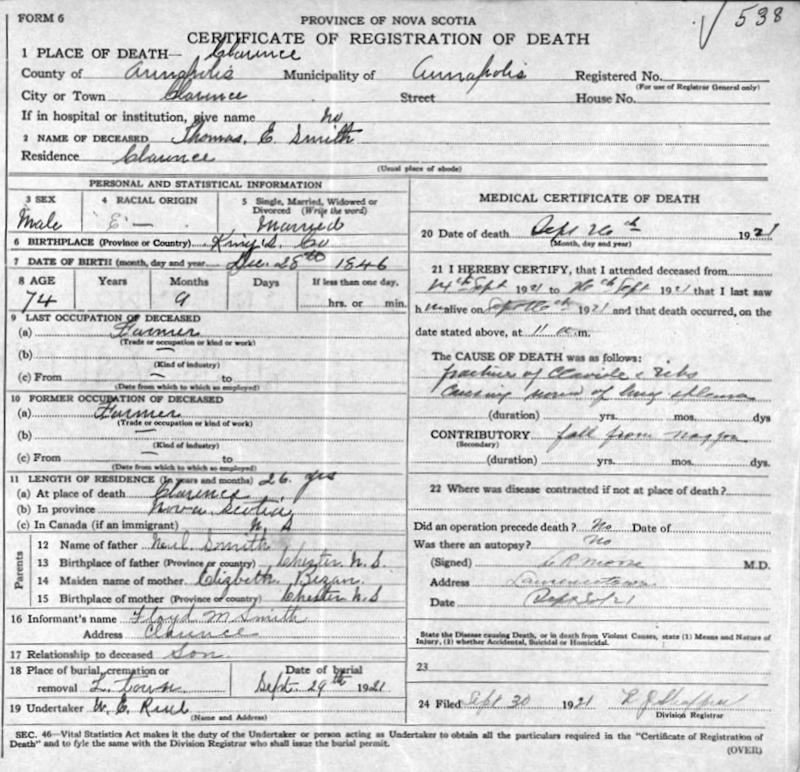 FORM 6
PROVINCE OF NOVA SCOTIA
538
CERTIFICATE OF REGISTRATION OF DEATH
1 PLACE OF DEATH— Clarence
County of Annapolis Municipality of Annapolis Registered No.
(For use of Registrar General only)
City or Town Clarence Street House No.
If in hospital or institution, give name no
2 NAME OF DECEASED Thomas. E. Smith
Residence Clarence
(Usual place of abode)
PERSONAL AND STATISTICAL INFORMATION
3 SEX 4 RACIAL ORIGIN 5 Single, Married, Widowed or Divorced (Write the word)
Male E— Married
6 BIRTHPLACE (Province or Country) King's. Co
7 DATE OF BIRTH (month, day and year Dec. 25th 1846
8 AGE Years Months Days If less than one day.
74 9 hrs. or min.
9 LAST OCCUPATION OF DECEASED
(a) Farmer
(Trade or occupation or kind or work)
(b)
(Kind of industry)
(c) From to
(Date from which to which so employed)
10 FORMER OCCUPATION OF DECEASED
(a) Farmer
(Trade or occupation or kind of work)
(b)
(Kind of industry)
(c) From to
(Date from which to which so employed)
11 LENGTH OF RESIDENCE (In years and months) 26. yrs
(a) At place of death Clarence
(b) In province Nova Scotia
(c) In Canada (if an immigrant) N S
Parents
12 Name of father Neil. Smith
13 Birthplace of father (Province or country) Chester N. S.
14 Maiden name of mother Elizbeth
15 Birthplace of mother (Province or country) Chester N. S
16 Informant's name Floyd M Smith
Address Clarence
17 Relationship to deceased Son.
18 Place of burial, cremation or removal L. Town Date of burial Sept. 29th 1921
19 Undertaker W. E.
(Name and Address)
MEDICAL CERTIFICATE OF DEATH
20 Date of death Sept 26th 1921
(Month, day and year)
21 I HEREBY CERTIFY, that I attended deceased from
14th Sept 1921 to 26th Sept 1921 that I last saw
h im alive on 1921 and that death occurred, on the
date stated above, at 11 a.m.
The CAUSE OF DEATH was as follows:
fracture of Clavicle & ribs
causing of lung & pleura
(duration) yrs. mos. dys
CONTRIBUTORY fall from
(Secondary)
(duration) yrs. mos. dys.
22 Where was disease contracted if not at place of death?
Did an operation precede death? No Date of
Was there an autopsy? No
(Signed) Moore M.D.
Address Lawrencetown
Date
State the Disease causing Death, or in death from Violent Causes, state (1) Means and Nature of
Injury, (2) whether Accidental, Suicidal or Homicidal.
23
24 Filed Sept 30 1921
Division Registrar
SEC. 46—Vital Statistics Act makes it the duty of the Undertaker or person acting as Undertaker to obtain all the particulars required in the "Certificate of Registration of
Death" and to fyle the same with the Division Registrar who shall issue the burial permit.
(OVER)